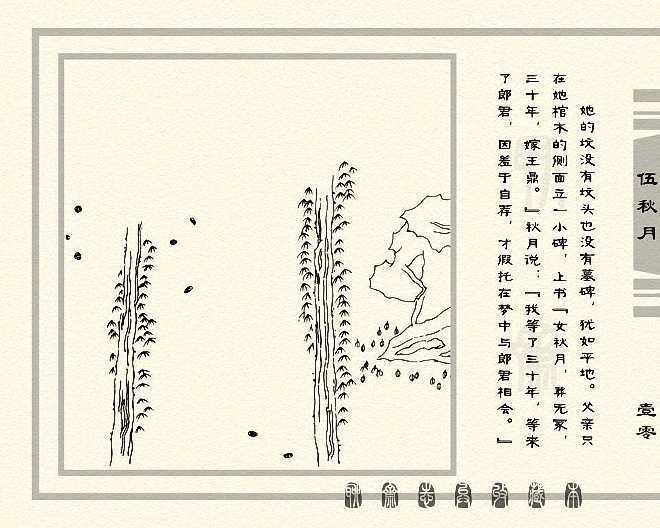 她的坟没有坟头也没有墓碑，犹如平地。父亲只
在她棺木的侧面立一小碑，上书『女秋月，葬无冢，
三十年，嫁王鼎。』秋月说：『我等了三十年，等来
了郎君，因羞于自荐，才假托在梦中与郎君相会。』
伍秋月
壹零